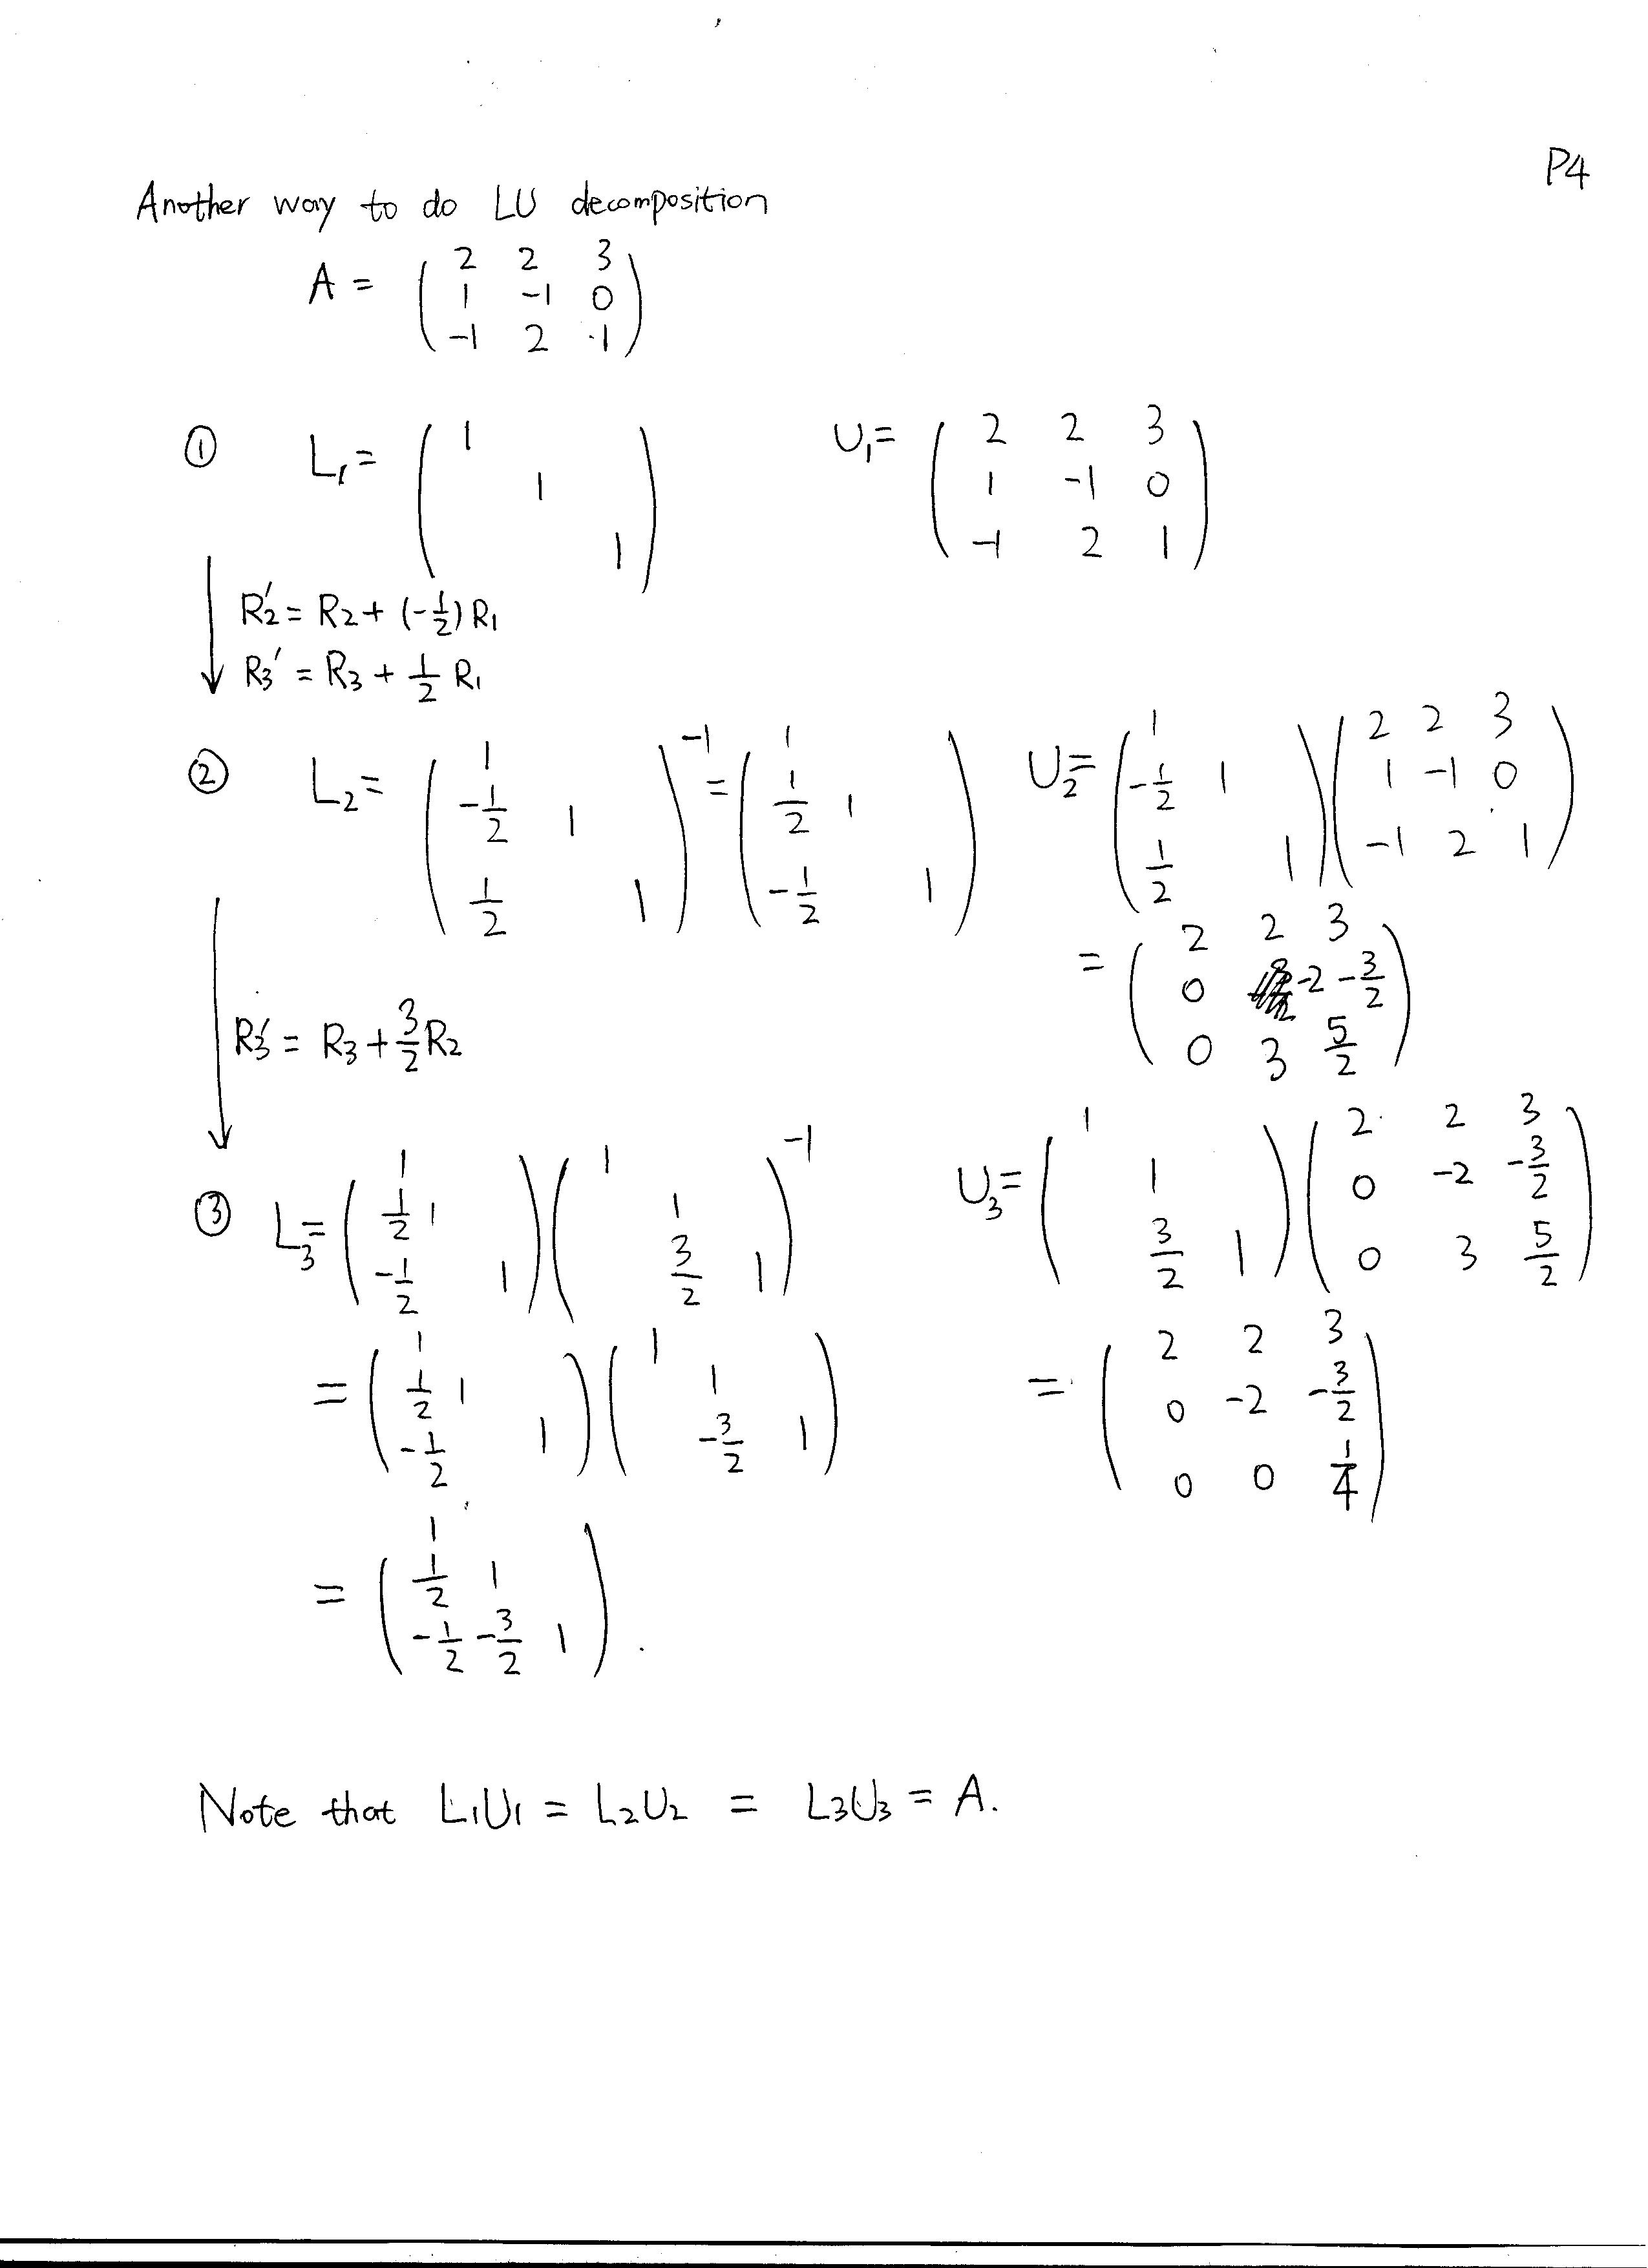 P4
Another way to do LU decomposition
A = ( 2 2 3
1 -1 0
-1 2 1 )
① L₁ = ( 1
1
1 )
U₁ = ( 2 2 3
1 -1 0
-1 2 1 )
R₂' = R₂ + (-1/2) R₁
R₃' = R₃ + 1/2 R₁
② L₂ = ( 1
-1/2 1
1/2 1 )⁻¹ = ( 1
1/2 1
-1/2 1 )
U₂ = ( 1
-1/2 1
1/2 1 ) ( 2 2 3
1 -1 0
-1 2 1 )
= ( 2 2 3
0 -2 -3/2
0 3 5/2 )
R₃' = R₃ + 3/2 R₂
③ L₃ = ( 1
1/2 1
-1/2 1 ) ( 1
1
3/2 1 )⁻¹
U₃ = ( 1
1
3/2 1 ) ( 2 2 3
0 -2 -3/2
0 3 5/2 )
= ( 1
1/2 1
-1/2 1 ) ( 1
1
-3/2 1 )
= ( 2 2 3
0 -2 -3/2
0 0 1/4 )
= ( 1
1/2 1
-1/2 -3/2 1 ).
Note that L₁U₁ = L₂U₂ = L₃U₃ = A.